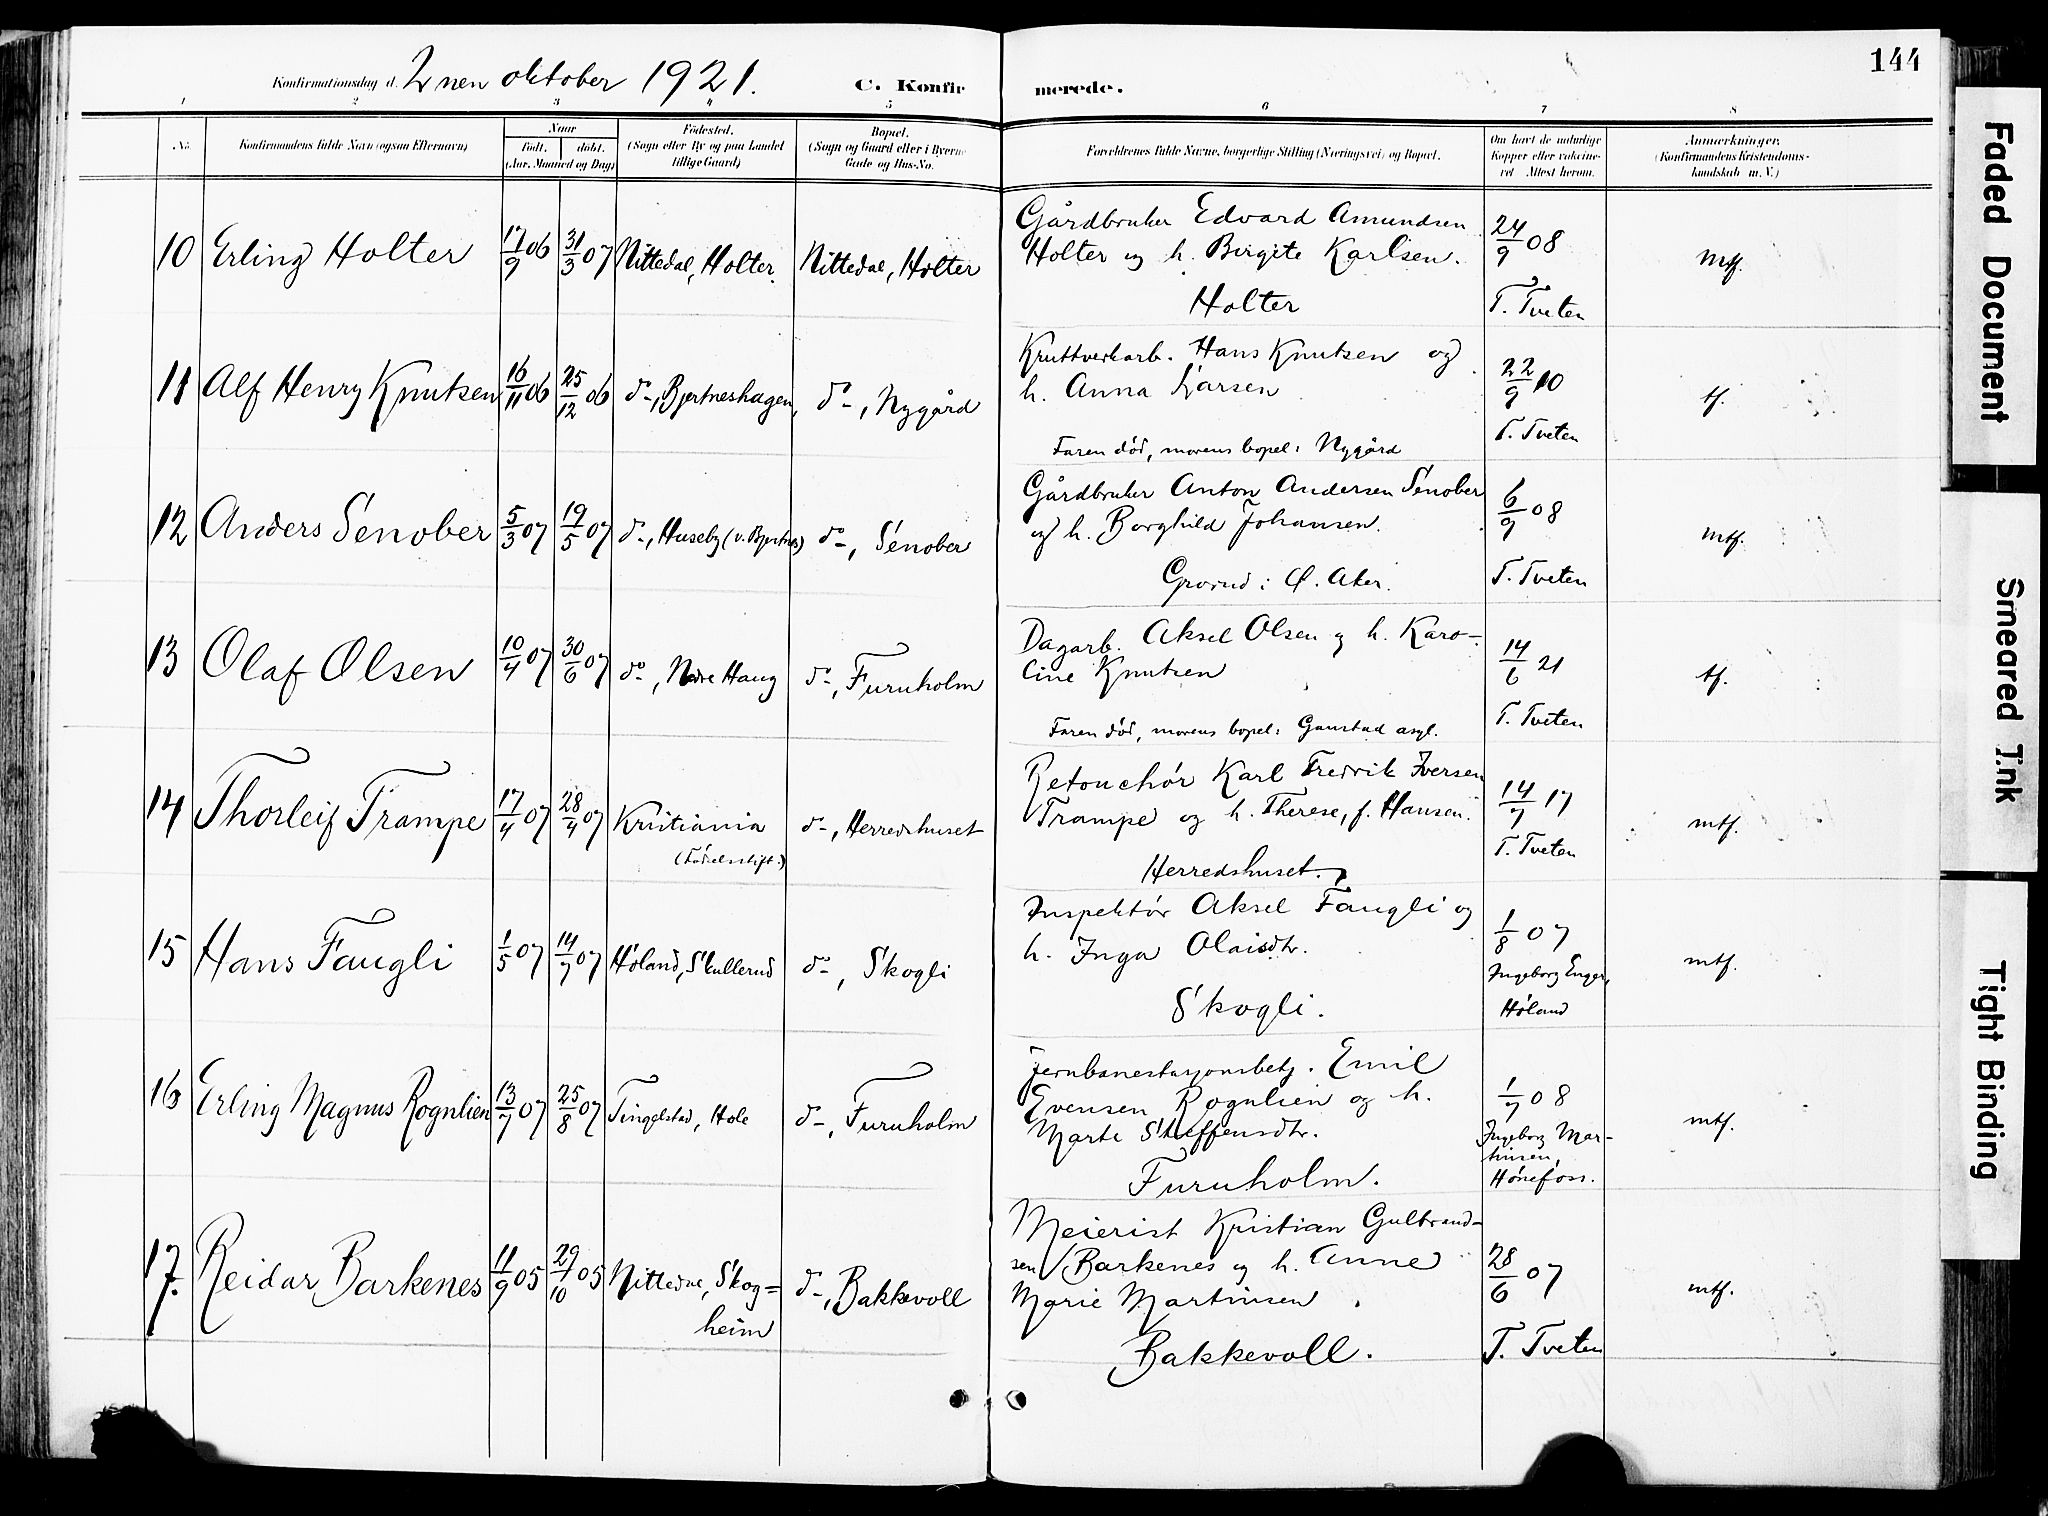 144
Konfirmationsdag d. 2nen oktober 1921. C. Konfirmerede.
1 2 3 4 5 6 7 8
No. Konfirmandens fulde Navn (ogsaa Efternavn) Naar født. døbt. (Aar, Maaned og Dag) Fødested. (Sogn eller By og paa Landet tillige Gaard) Bopæl. (Sogn og Gaard eller i Byerne Gade og Hus-No. Forældrenes fulde Navne, borgerlige Stilling (Næringsvei) og Bopæl. Om havt de naturlige Kopper eller vakcineret Attest herom. Anmærkninger. (Konfirmandens Kristendomskundskab m. V.)
10 Erling Holter 17/9 06 31/3 07 Nittedal, Holter. Nittedal, Holter Gårdbruker Edvard Amundsen 24/9 08 mtf.
Holter og h. Birgite Karlsen.
Holter T. Tveten
11 Alf Henry Knutsen 16/11 06 25/12 06 do-, Bjertneshagen, do-, Nygård Kruttverkarb. Hans Knutsen og 22/9 10 tf.
h. Anna Larsen
Faren død, morens bopel: Nygård T. Tveten
12 Anders Senober 5/3 07 19/5 07 do-, Huseby (v. Bjertnes) do-, Senober Gårdbruker Anton Andersen Senober 6/9 08 mtf.
og h. Borghild Johansen.
Grorud i Ø. Aker. T. Tveten
13 Olaf Olsen 10/4 07 30/6 07 do-, Nedre Haug do-, Furuholm Dagarb. Aksel Olsen og h. Karo- 14/6 21 tf.
line Knutsen
Faren død, morens bopel: Gaustad asyl. T. Tveten
14 Thorleif Trampe 17/4 07 28/4 07 Kristiania do-, Herredshuset Retouchör Karl Fredrik Iversen 14/7 17 mtf.
(Fødselsstift.) Trampe og h. Therese, f. Hansen.
Herredshuset. T. Tveten
15 Hans Faugli 1/5 07 14/7 07 Höland, Skullerud do-, Skogli Inspektör Aksel Faugli og 1/8 07 mtf.
h. Inga Olaisdtr. Ingeborg Enger,
Skogli. Höland
16 Erling Magnus Rognlien 13/7 07 25/8 07 Tingelstad, Hole do-, Furuholm Jernbanestasjonsbetj. Emil 1/7 08 mtf.
Evensen Rognlien og h.
Marte Steffensdtr. Ingeborg Mar-
tinsen,
Furuholm. Hönefoss.
17. Reidar Barkenes 11/9 05 29/10 05 Nittedal, Skog= do-, Bakkevoll Meierist Kristian Gulbrand- 28/6 07 mtf.
heim sen Barkenes og h. Anne
Marie Martinsen
Bakkevoll. T. Tveten
Faded Document
Smeared Ink
Tight Binding